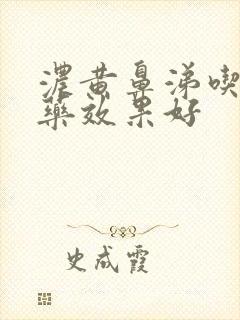 濃黄鼻涕喫
藥效果好
史成霞